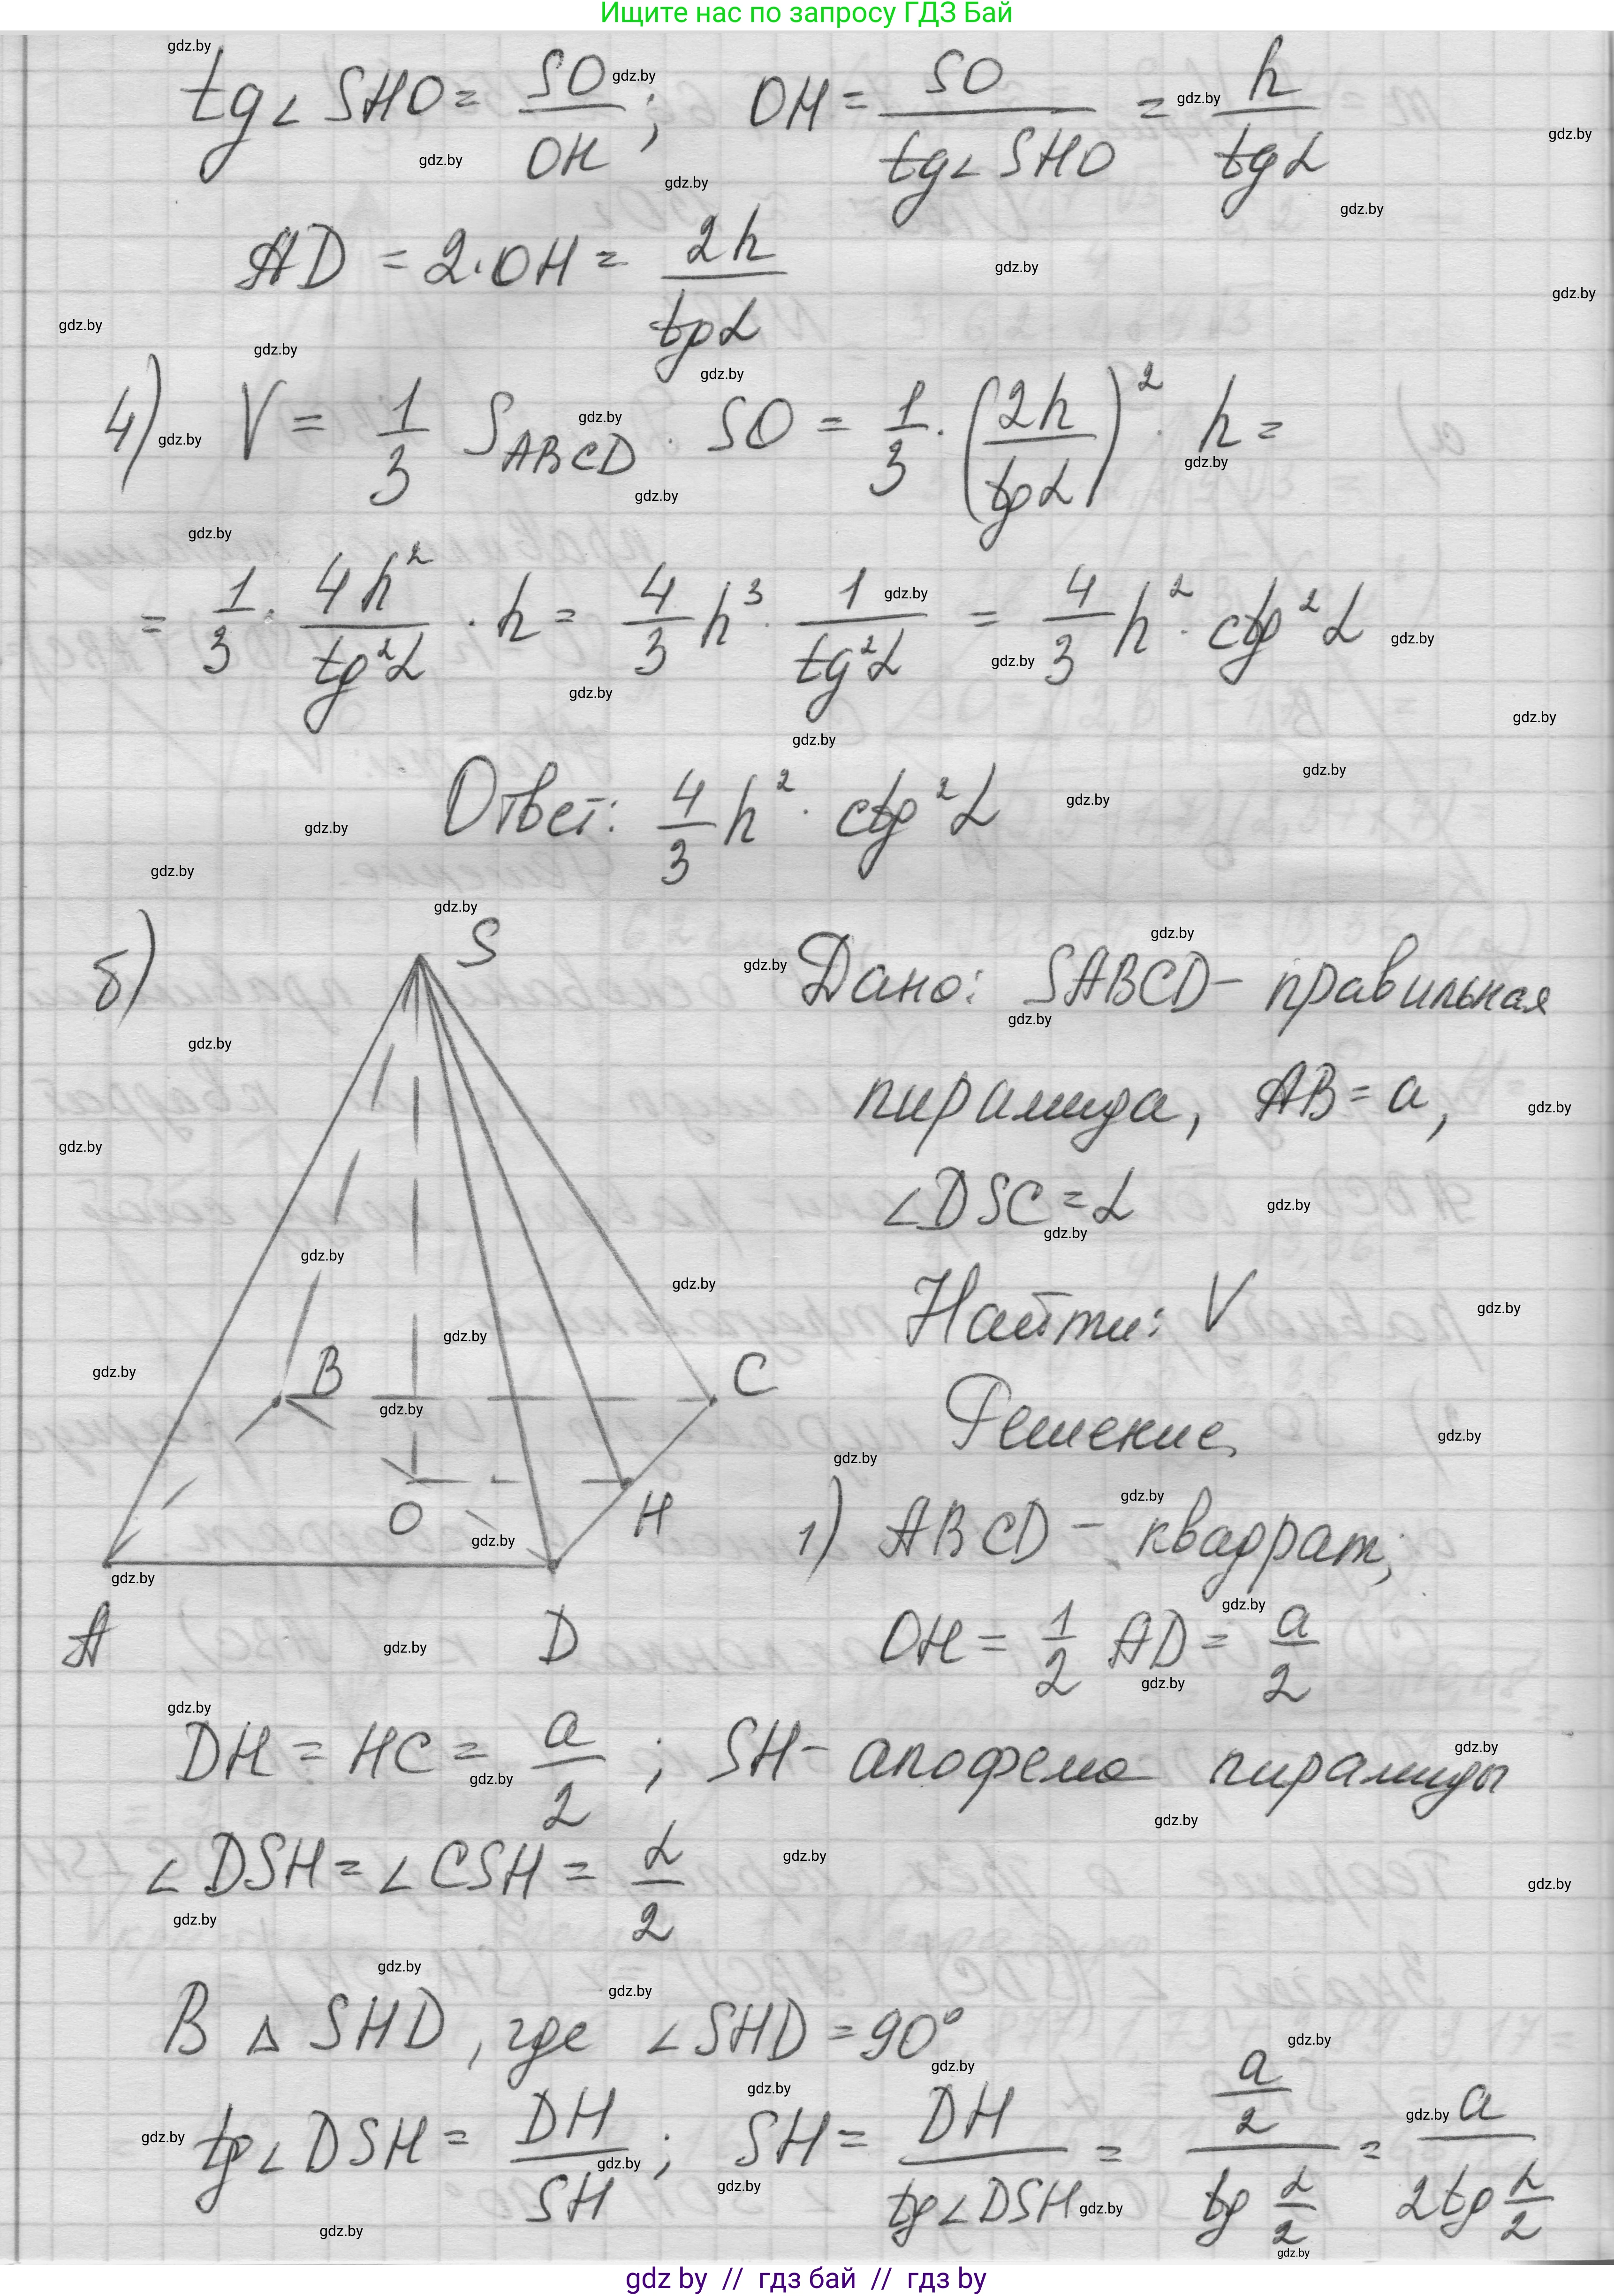 Ищите нас по запросу ГДЗ Бай
tg∠SHO = SO/OH; OH = SO/tg∠SHO = h/tgα
AD = 2·OH = 2h/tgα
4) V = 1/3 S_ABCD · SO = 1/3 · (2h/tgα)² · h =
= 1/3 · 4h²/tg²α · h = 4/3 h³ · 1/tg²α = 4/3 h² · ctg²α
Ответ: 4/3 h² · ctg²α
б)
S
B
C
O
H
A
D
Дано: SABCD – правильная
пирамида, AB = a,
∠DSC = α
Найти: V
Решение
1) ABCD – квадрат;
OH = 1/2 AD = a/2
DH = HC = a/2; SH – апофема пирамиды
∠DSH = ∠CSH = α/2
В △SHD, где ∠SHD = 90°
tg∠DSH = DH/SH; SH = DH/tg∠DSH = (a/2)/(tg α/2) = a/(2tg α/2)
gdz by // гдз бай // гдз by